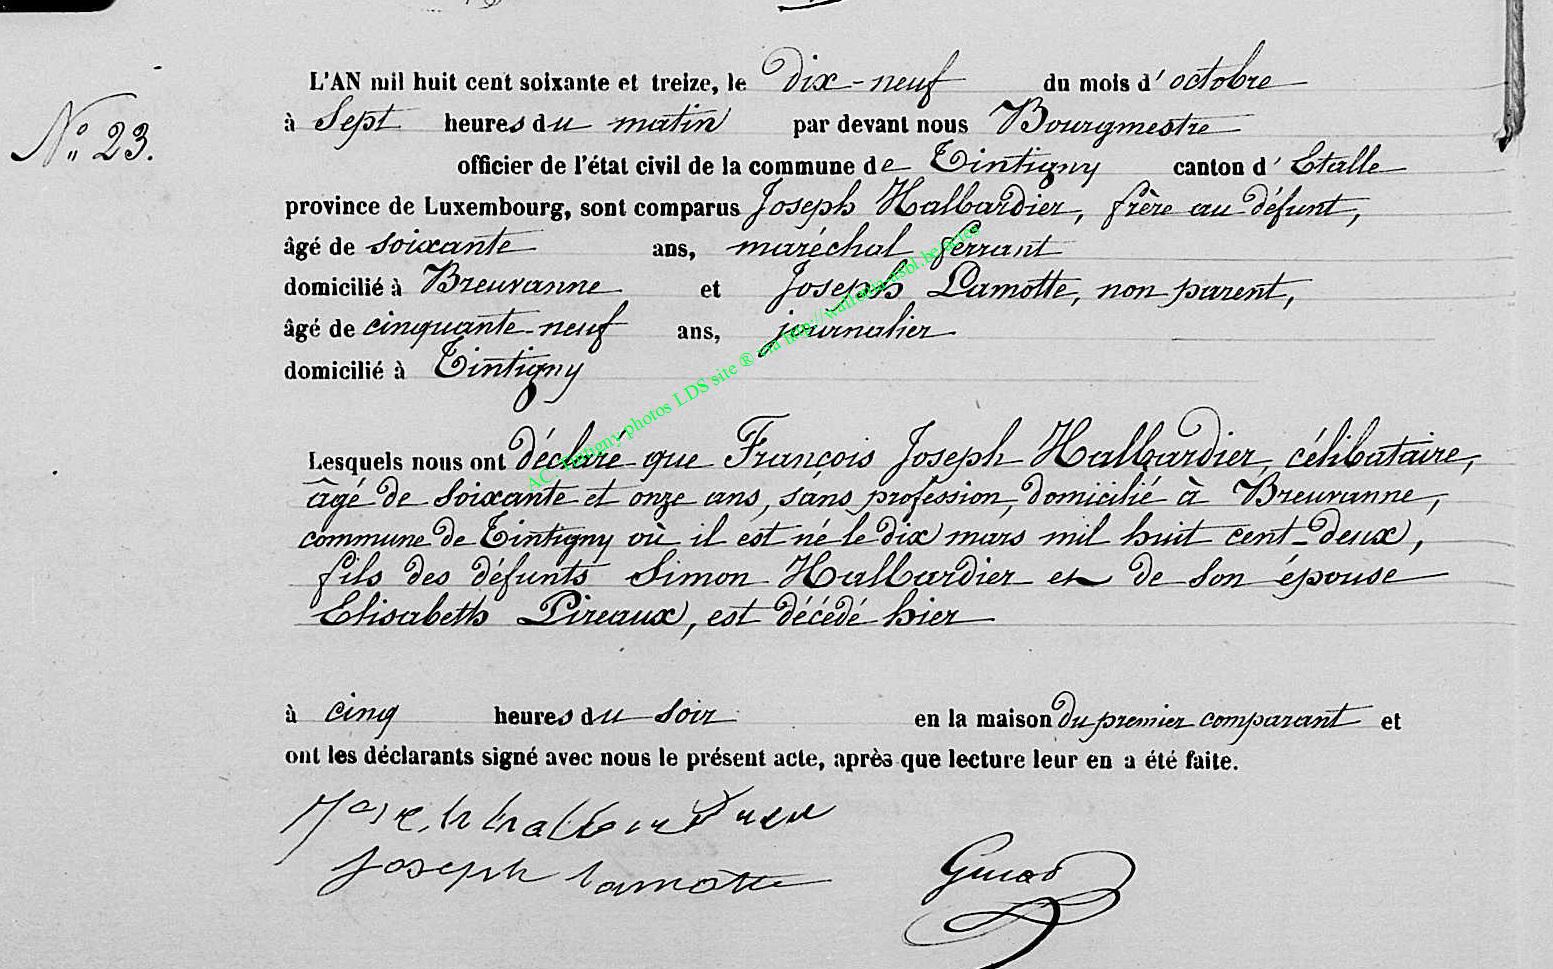 L'AN mil huit cent soixante et treize, le dix-neuf du mois d'octobre
N° 23.
à sept heures du matin par devant nous Bourgmestre
officier de l'état civil de la commune de Tintigny canton d'Etalle
province de Luxembourg, sont comparus Joseph Halbardier, frère au défunt,
âgé de soixante ans, maréchal ferrant
domicilié à Breuvanne et Joseph Lamotte, non parent,
âgé de cinquante-neuf ans, journalier
domicilié à Tintigny
AC Tintigny photos LDS site ® via http://wallonia-asbl.be/acies
Lesquels nous ont déclaré que François Joseph Halbardier, célibataire,
âgé de soixante et onze ans, sans profession, domicilié à Breuvanne,
commune de Tintigny où il est né le dix mars mil huit cent-deux,
fils des défunts Simon Halbardier et de son épouse
Elisabeth Pireaux, est décédé hier
à cinq heures du soir en la maison du premier comparant et
ont les déclarants signé avec nous le présent acte, après que lecture leur en a été faite.
joseph lamotte